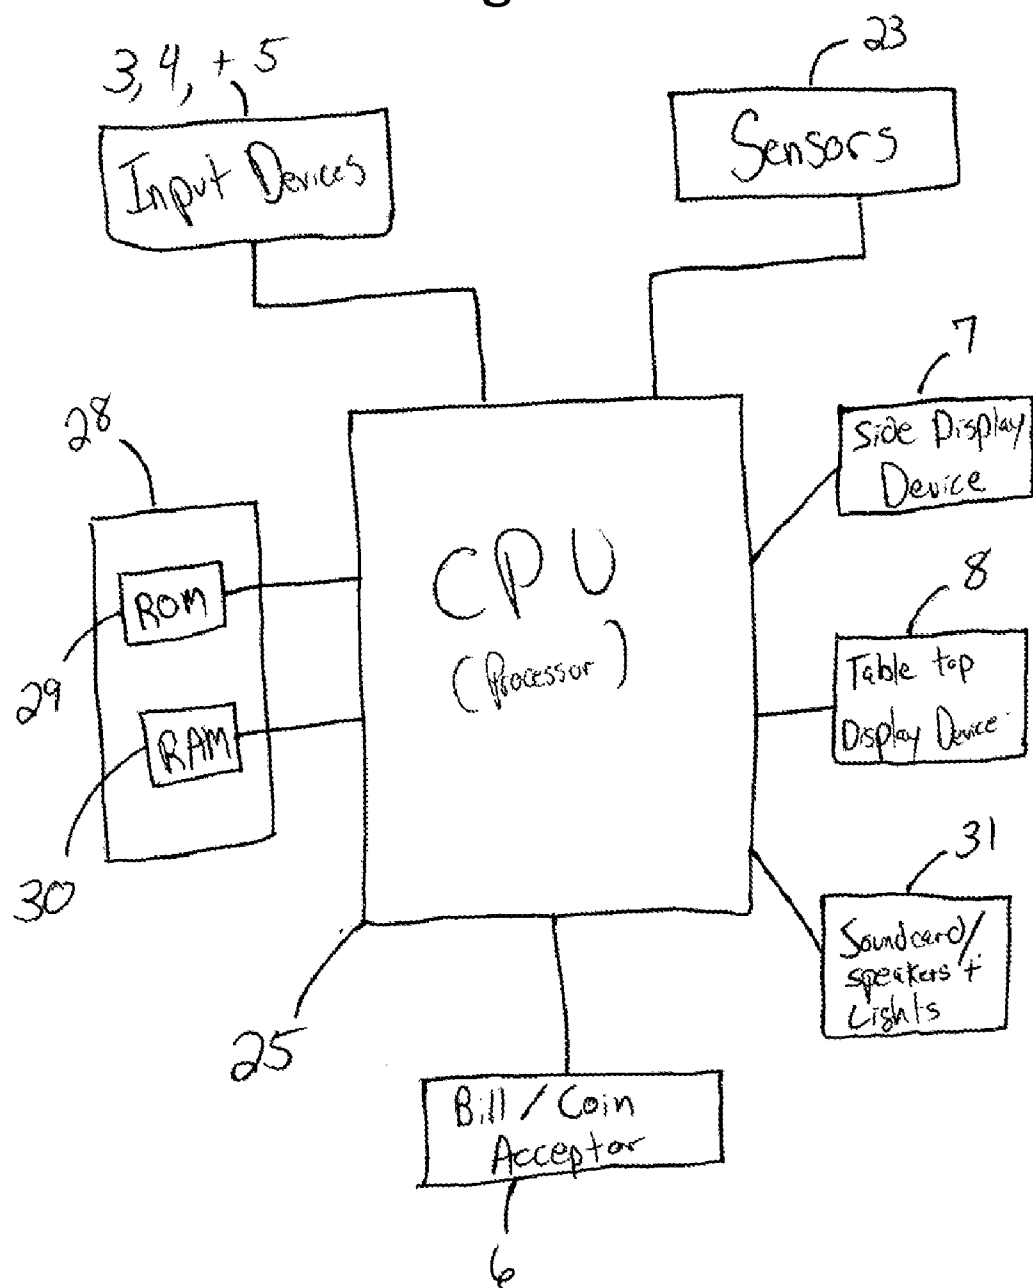 3, 4, + 5
Input Devices
23
Sensors
7
Side Display
Device
28
ROM
29
RAM
30
CPU
(Processor)
8
Table top
Display Device
31
Soundcard/
speakers +
Lights
25
Bill / Coin
Acceptor
6